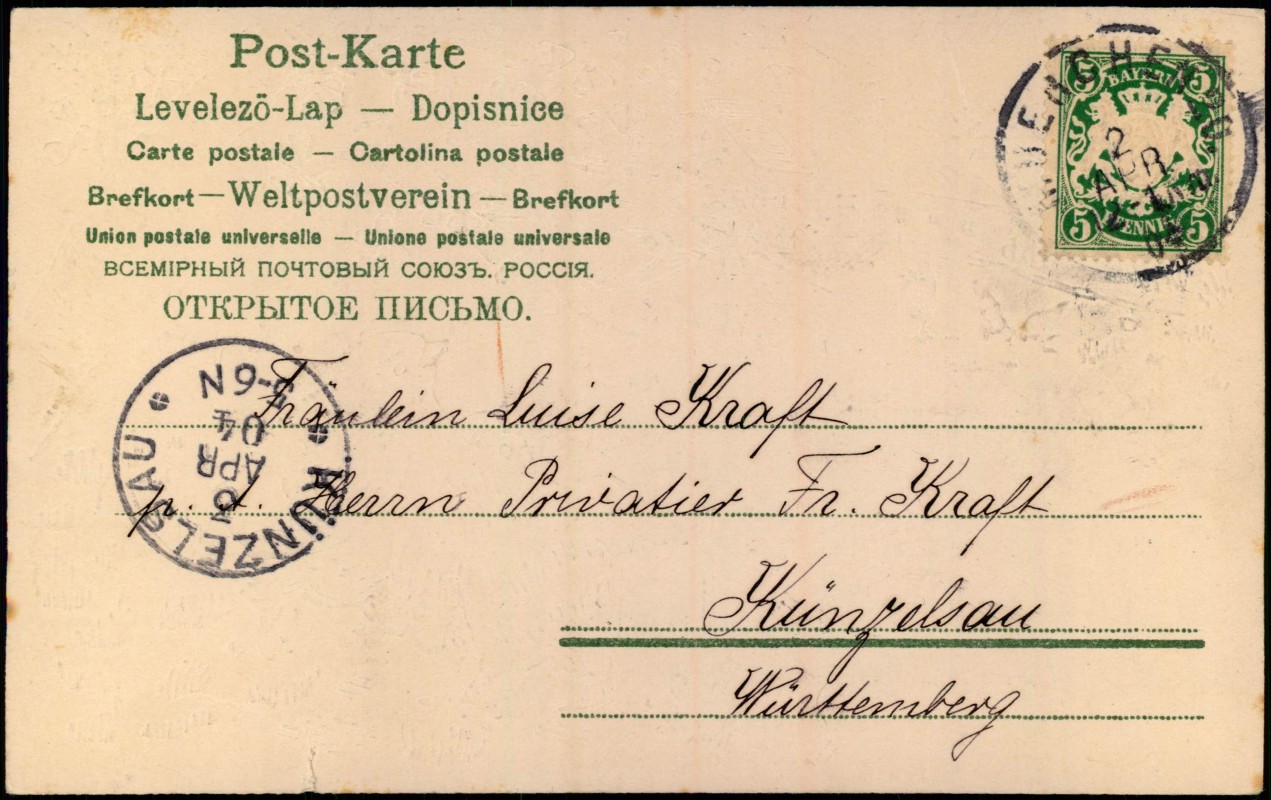 Post-Karte
Levelezö-Lap — Dopisnice
Carte postale — Cartolina postale
Brefkort — Weltpostverein — Brefkort
Union postale universelle — Unione postale universale
ВСЕМІРНЫЙ ПОЧТОВЫЙ СОЮЗЪ. РОССІЯ.
ОТКРЫТОЕ ПИСЬМО.
5 BAYERN 5
5 PFENNIG 5
2
APR
04
KÜNZELSAU
3
APR
04
5-6N
Fräulein Luise Kraft
p. A. Herrn Privatier Fr. Kraft
Künzelsau
Württemberg